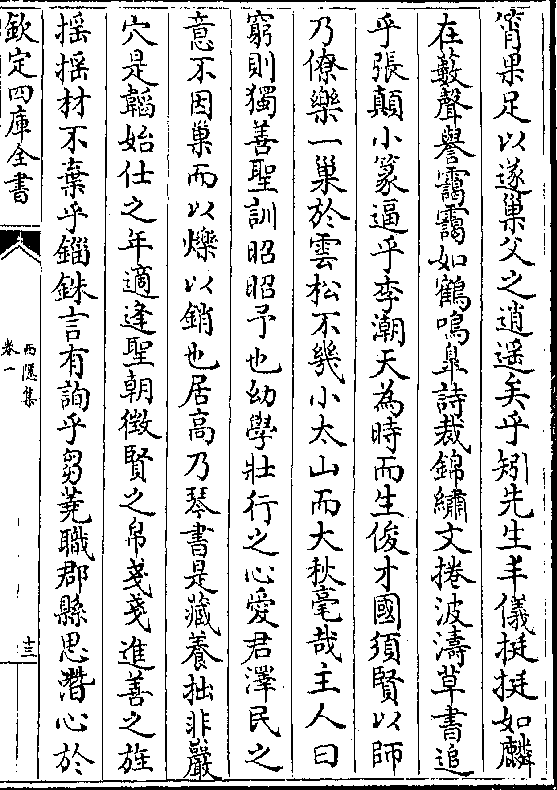 脊果足以遂巢父之逍遥矣乎矧先生丰儀挺挺如麟
在藪聲譽靄靄如鶴鳴臯詩裁錦繡文捲波濤草書追
乎張顛小篆逼乎李潮天為時而生俊才國須賢以師
乃僚樂一巢於雲松不幾小太山而大秋毫哉主人曰
窮則獨善聖訓昭昭予也幼學壯行之心愛君澤民之
意不因巢而以爍以銷也居高乃琴書是藏養拙非巖
穴是韜始仕之年適逢聖朝徴賢之帛戔戔進善之旌
揺揺材不棄乎錙銖言有詢乎芻蕘職郡縣思濳心於
欽定四庫全書
西隱集
卷一
十三